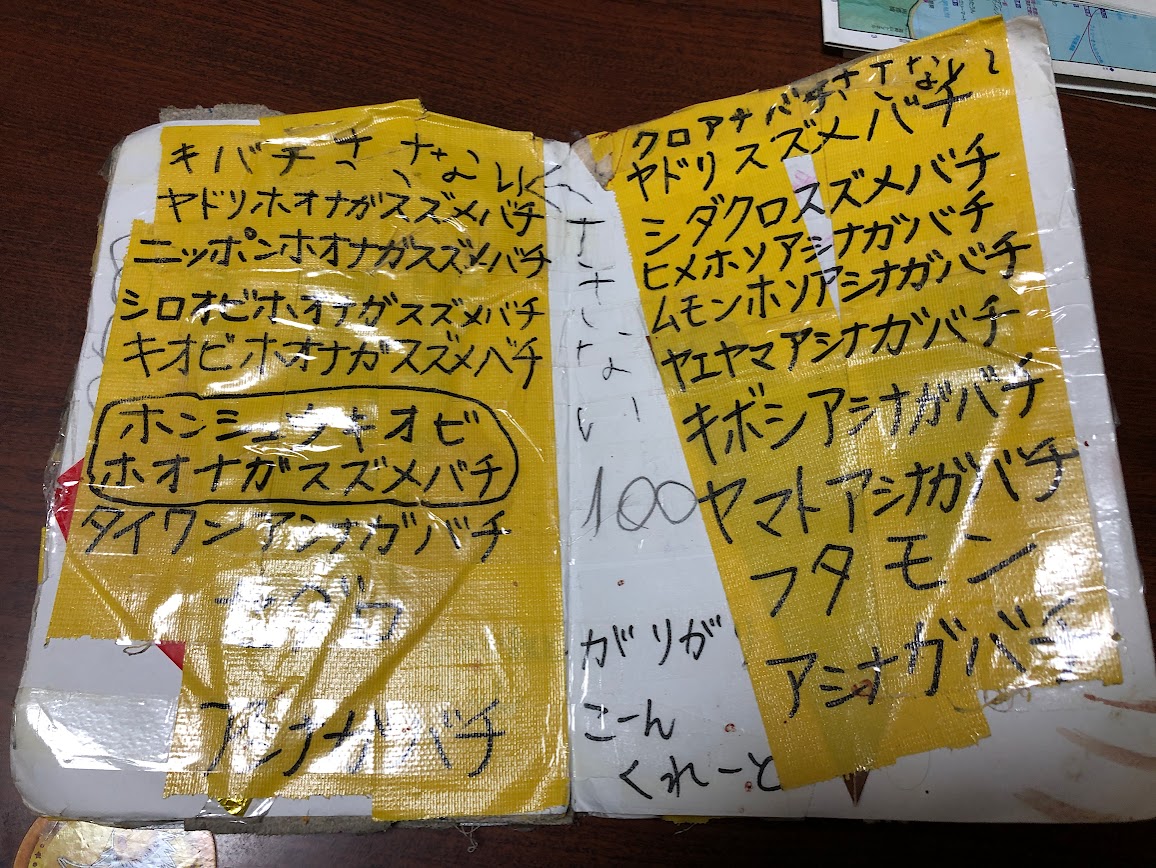 キバチ ささない
ヤドリホオナガスズメバチ
ニッポンホオナガスズメバチ
シロオビホオナガスズメバチ
キオビホオナガスズメバチ
ホンシュウキオビ
ホオナガスズメバチ
タイワンアシナガバチ
セグロ
アシナガバチ
ささない
100
がりが
こーん
くれーと
クロアナバチささない
ヤドリスズメバチ
シダクロスズメバチ
ヒメホソアシナガバチ
ムモンホソアシナガバチ
ヤエヤマアシナガバチ
キボシアシナガバチ
ヤマトアシナガバチ
フタモン
アシナガバチ